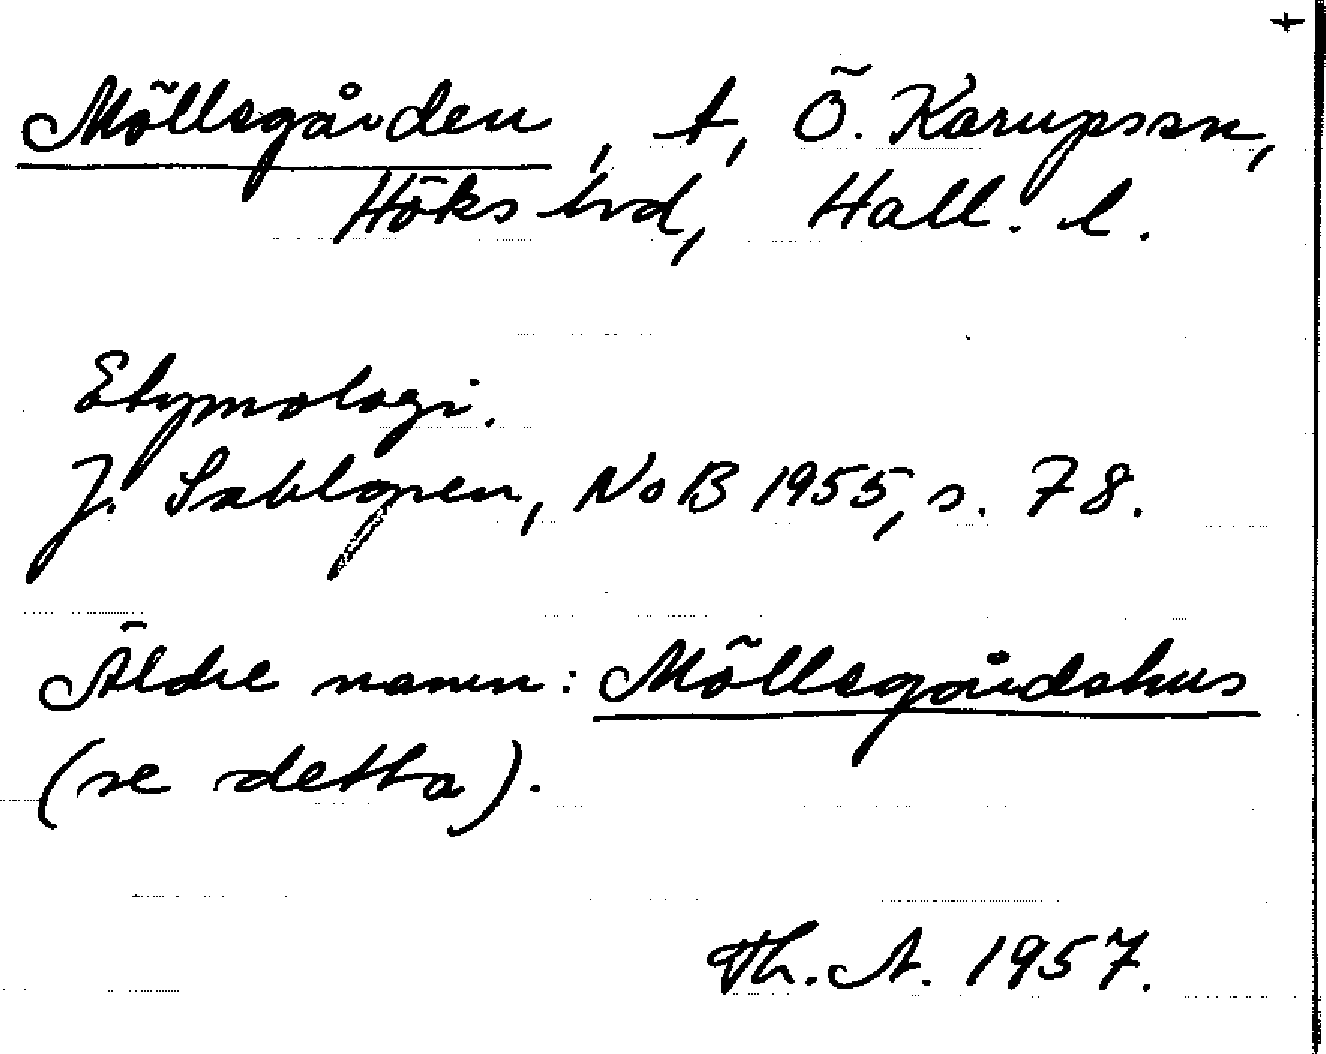 +
Möllegården, t, Ö. Karupssn,
Höks hd, Hall. l.
Etymologi.
J. Sahlgren, NoB 1955, s. 78.
Äldre namn: Möllegårdshus
(se detta).
Th. A. 1957.